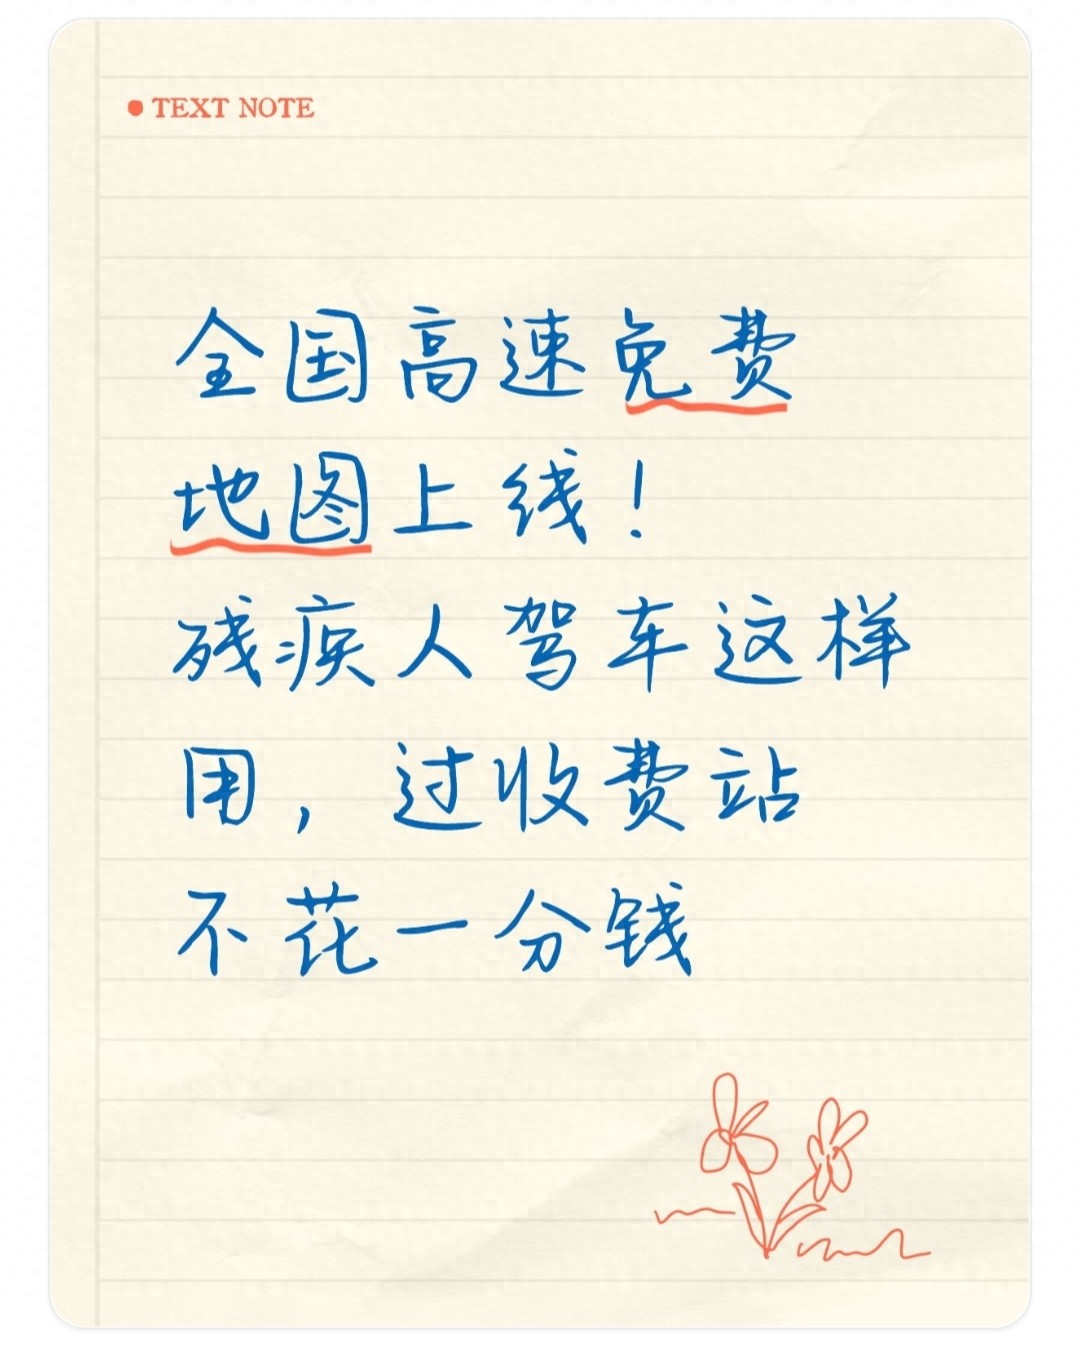 TEXT NOTE
全国高速免费
地图上线！
残疾人驾车这样
用，过收费站
不花一分钱